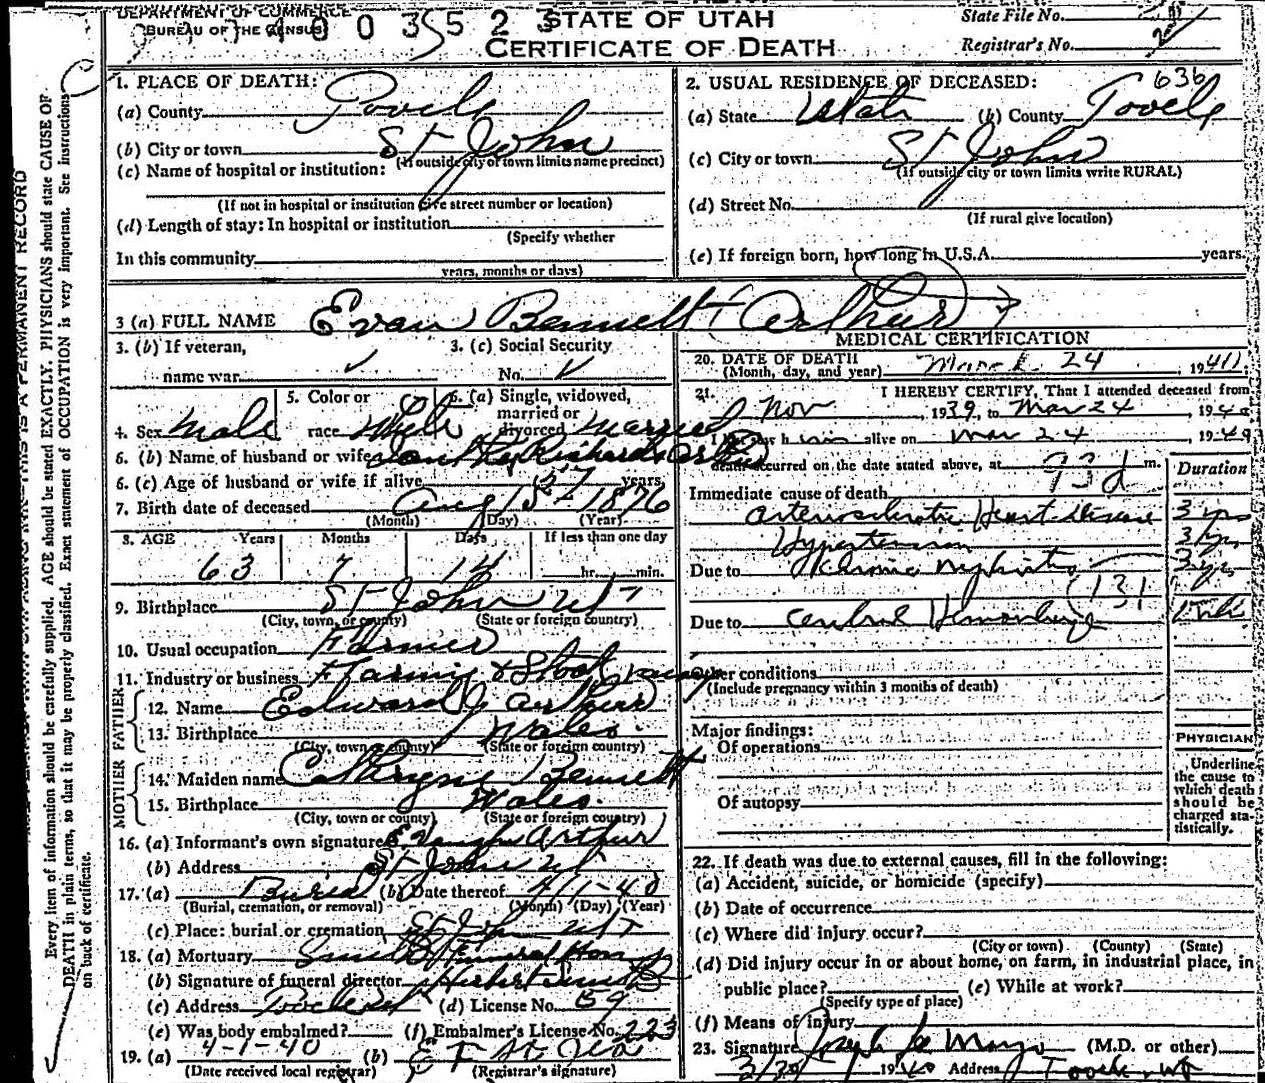 DEPARTMENT OF COMMERCE
BUREAU OF THE CENSUS
STATE OF UTAH
CERTIFICATE OF DEATH
State File No.
Registrar's No.
1. PLACE OF DEATH:
(a) County Tooele
(b) City or town St John
(If outside city or town limits name precinct)
(c) Name of hospital or institution:
(If not in hospital or institution give street number or location)
(d) Length of stay: In hospital or institution
(Specify whether
In this community
years, months or days)
2. USUAL RESIDENCE OF DECEASED: 636
(a) State Utah (b) County Tooele
(c) City or town St John
(If outside city or town limits write RURAL)
(d) Street No.
(If rural give location)
(e) If foreign born, how long in U.S.A. years.
3 (a) FULL NAME Evan Bennett Arthur
3. (b) If veteran, name war
3. (c) Social Security No.
4. Sex Male
5. Color or race White
6. (a) Single, widowed, married or divorced Married
6. (b) Name of husband or wife Richards
6. (c) Age of husband or wife if alive 57 years
7. Birth date of deceased Aug 15 - 1876
(Month) (Day) (Year)
8. AGE Years Months Days If less than one day
63 7 14 hr. min.
9. Birthplace St John Ut
(City, town, or county) (State or foreign country)
10. Usual occupation Farmer
11. Industry or business Farming & Stock
FATHER
12. Name Edward J Arthur
13. Birthplace Wales
(City, town or county) (State or foreign country)
MOTHER
14. Maiden name Catheryne Bennett
15. Birthplace Wales
(City, town or county) (State or foreign country)
16. (a) Informant's own signature Arthur
(b) Address St John Ut
17. (a) Burial (b) Date thereof 4/1-40
(Burial, cremation, or removal) (Month) (Day) (Year)
(c) Place: burial or cremation St John Ut
18. (a) Mortuary Funeral Home
(b) Signature of funeral director Herbert Smith
(c) Address Tooele Ut (d) License No. 59
(e) Was body embalmed? (f) Embalmer's License No. 223
19. (a) 4-1-40 (b)
(Date received local registrar) (Registrar's signature)
MEDICAL CERTIFICATION
20. DATE OF DEATH March 24, 1940
(Month, day, and year)
21. I HEREBY CERTIFY, That I attended deceased from
Nov, 1939, to Mar 24, 1940
I last saw him alive on Mar 24, 1940
death occurred on the date stated above, at m.
Duration
Immediate cause of death
Arteriosclerotic Heart Disease 3 yrs
Hypertension 3 yrs
Due to Chronic Nephritis 3 yrs
131
Due to Cerebral Hemorrhage
Other conditions
(Include pregnancy within 3 months of death)
Major findings:
Of operations
Of autopsy
PHYSICIAN
Underline the cause to which death should be charged statistically.
22. If death was due to external causes, fill in the following:
(a) Accident, suicide, or homicide (specify)
(b) Date of occurrence
(c) Where did injury occur?
(City or town) (County) (State)
(d) Did injury occur in or about home, on farm, in industrial place, in
public place? (e) While at work?
(Specify type of place)
(f) Means of injury
23. Signature Joseph (M.D. or other)
1940 Address Tooele, Ut
Every item of information should be carefully supplied. AGE should be stated EXACTLY. PHYSICIANS should state CAUSE OF
DEATH in plain terms, so that it may be properly classified. Exact statement of OCCUPATION is very important. See instructions
on back of certificate.
THIS IS A PERMANENT RECORD